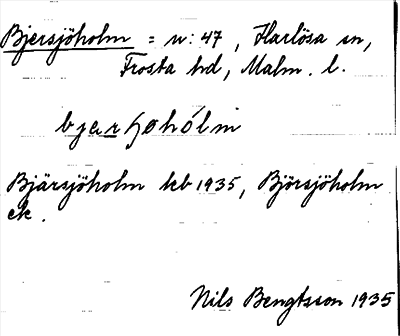 Bjersjöholm = n: 47, Harlösa sn,
Frosta hd, Malm. l.
Bjärsjöholm kb 1935, Björsjöholm
ek.
Nils Bengtsson 1935